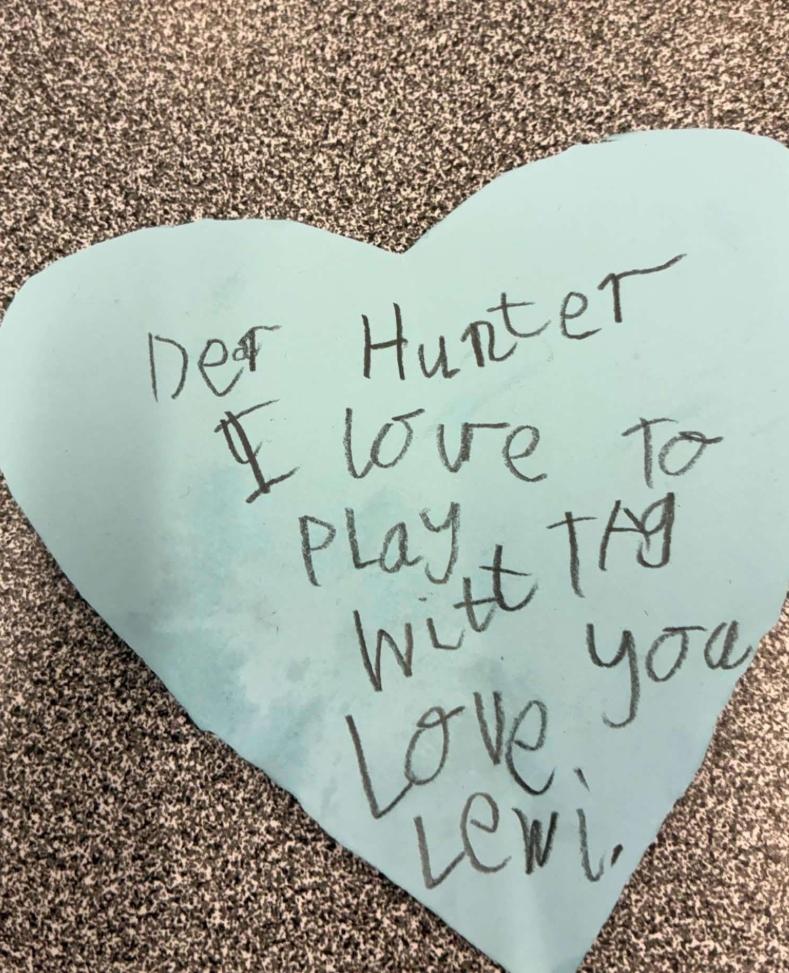 Dear Hunter
I love To
PLay TAg
Witt you
Love,
Lewi.